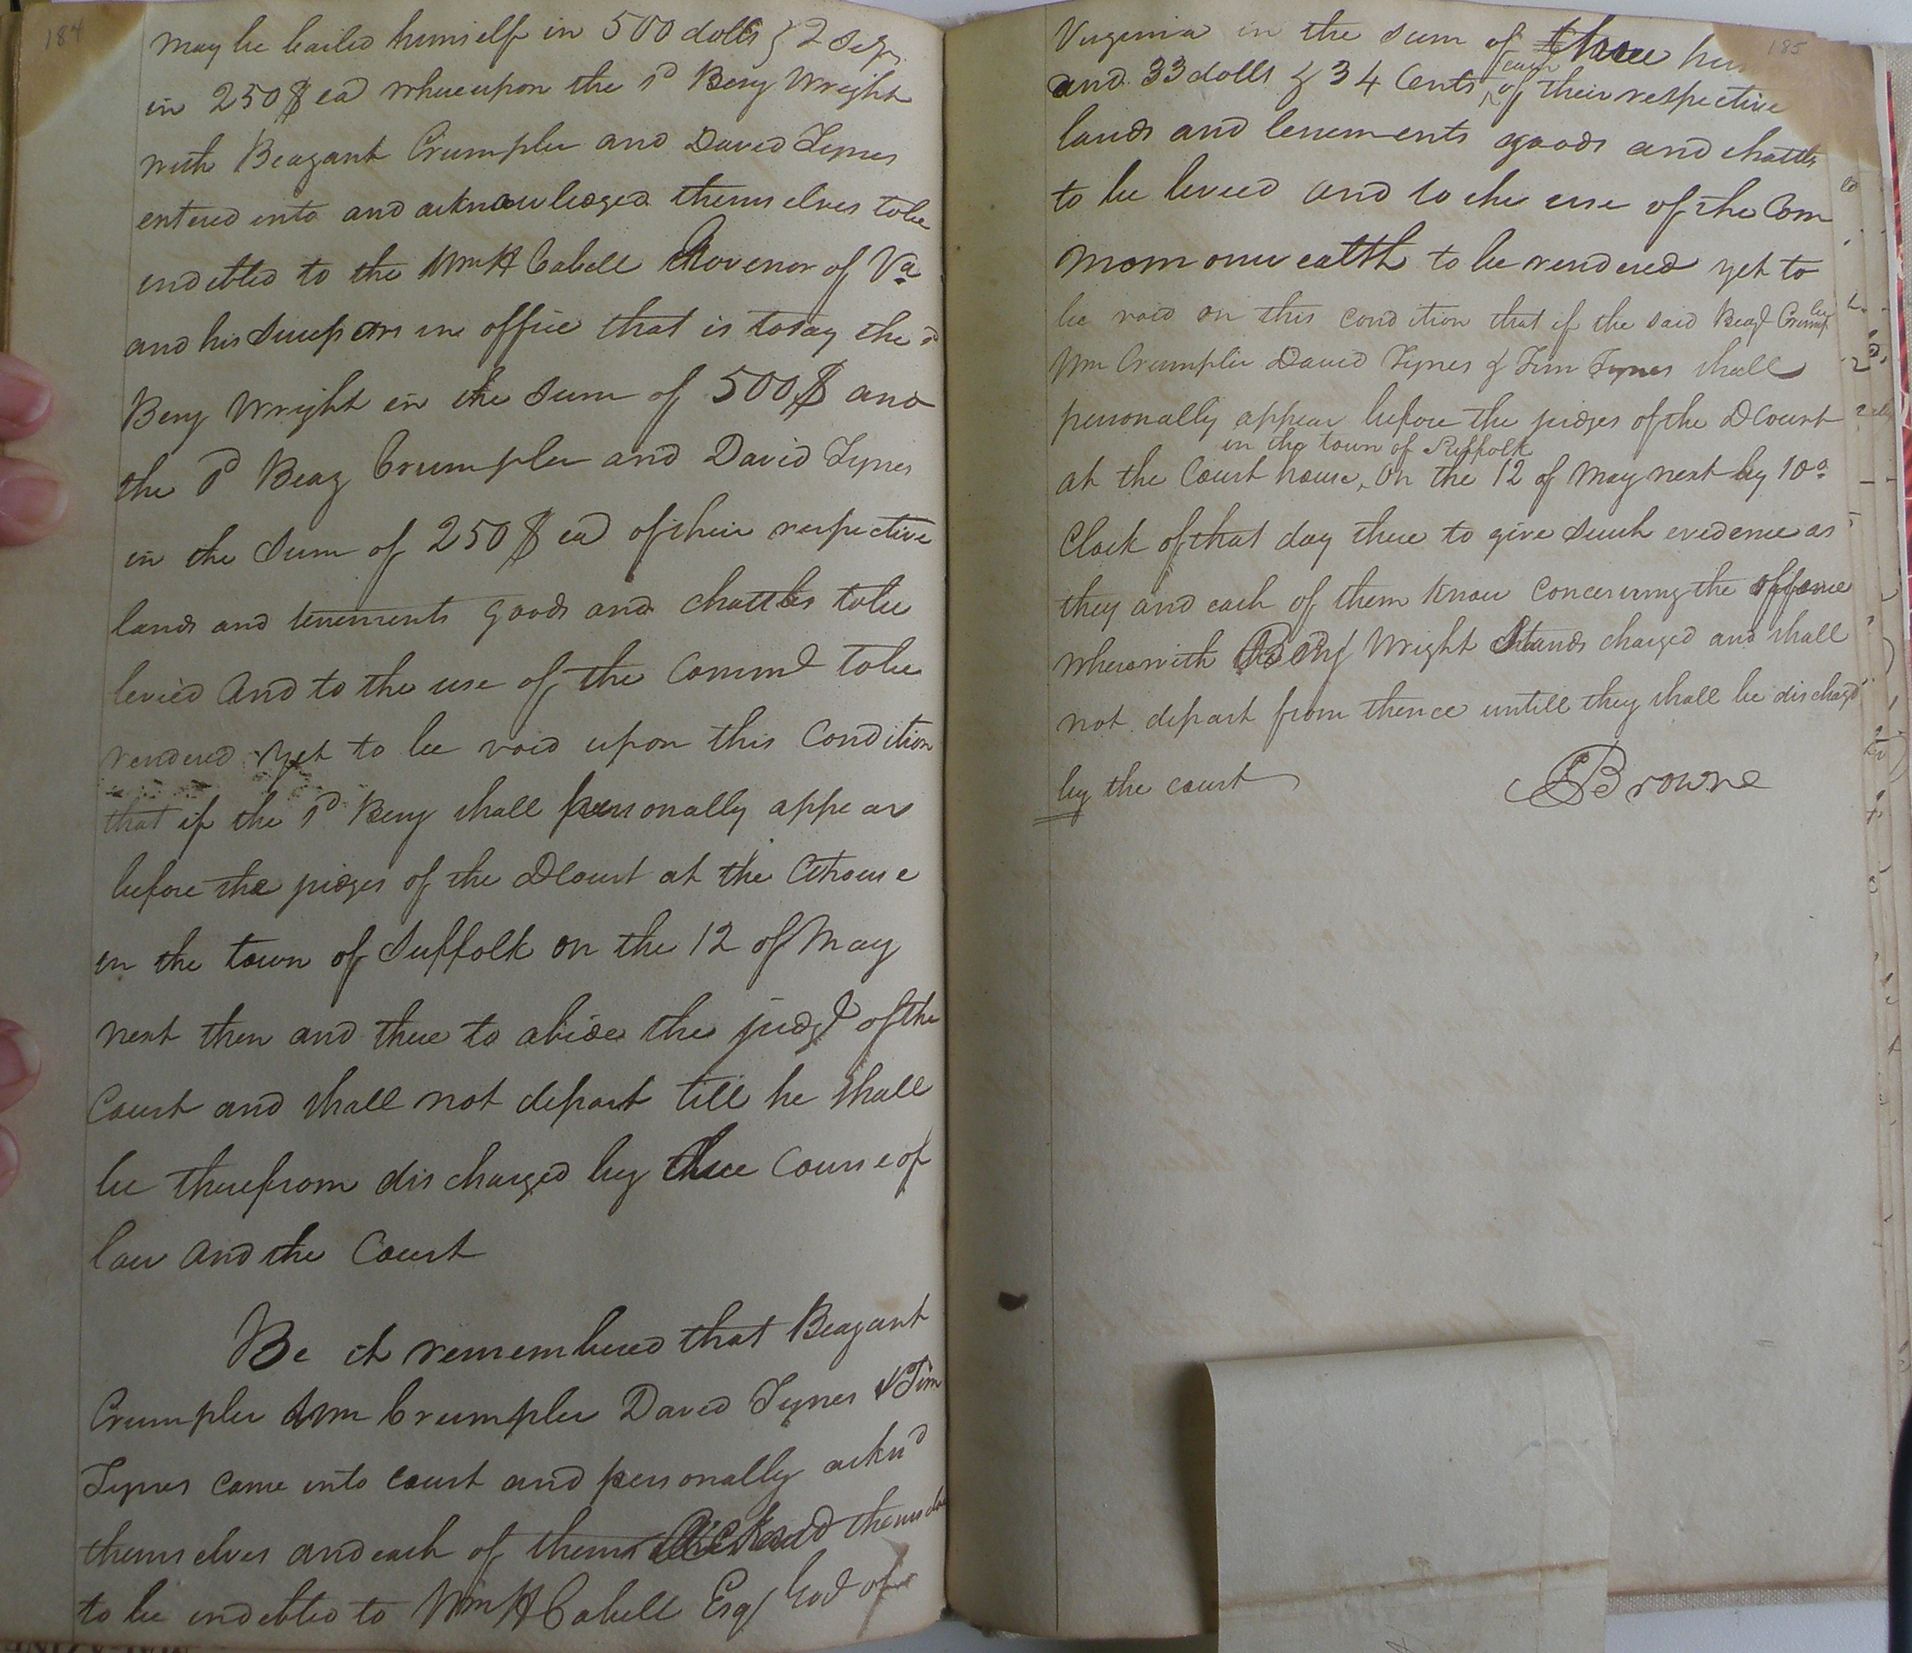 184
may be bailed himself in 500 dolls & 2 Sey
in 250$ ea whereupon the sd Beny Wright
with Beazant Crumpler and David Tynes
entered into and acknowledged themselves to be
indebted to the Wm H Cabell Govenor of Va
and his Sucessors in office that is to say the sd
Beny Wright in the Sum of 500$ and
the sd Beaz Crumpler and David Tynes
in the Sum of 250$ ea of their respective
lands and tenements goods and chattles to be
levied and to the use of the Commd to be
rendered yet to be void upon this Condition
that if the sd Beny shall personally appear
before the judges of the DCourt at the Cthouse
in the town of Suffolk on the 12 of May
next then and there to abide the judgt of the
Court and shall not depart till he shall
be therefrom discharged by the Course of
law and the Court
Be it remembered that Beazant
Crumpler Wm Crumpler David Tynes & Tim
Tynes came into court and personally acknd
themselves and each of them themselves
to be indebted to Wm H Cabell Esq Govr of
185
Virginia in the sum of three hun
and 33 dolls & 34 Cents each of their respective
lands and tenements goods and chattls
to be levied and to the use of the Com
momonweatlth to be rendered yet to
be void on this condition that if the said Beazt Crumpler
Wm Crumpler David Tynes & Tim Tynes shall
personally appear before the judges of the DCourt
in the town of Suffolk
at the Court house, On the 12 of May next by 10 o
Clock of that day there to give such evidence as
they and each of them know concerning the offence
wherewith Beny Wright Stands charged and shall
not depart from thence untill they shall be dischargd
by the court
JBrowne